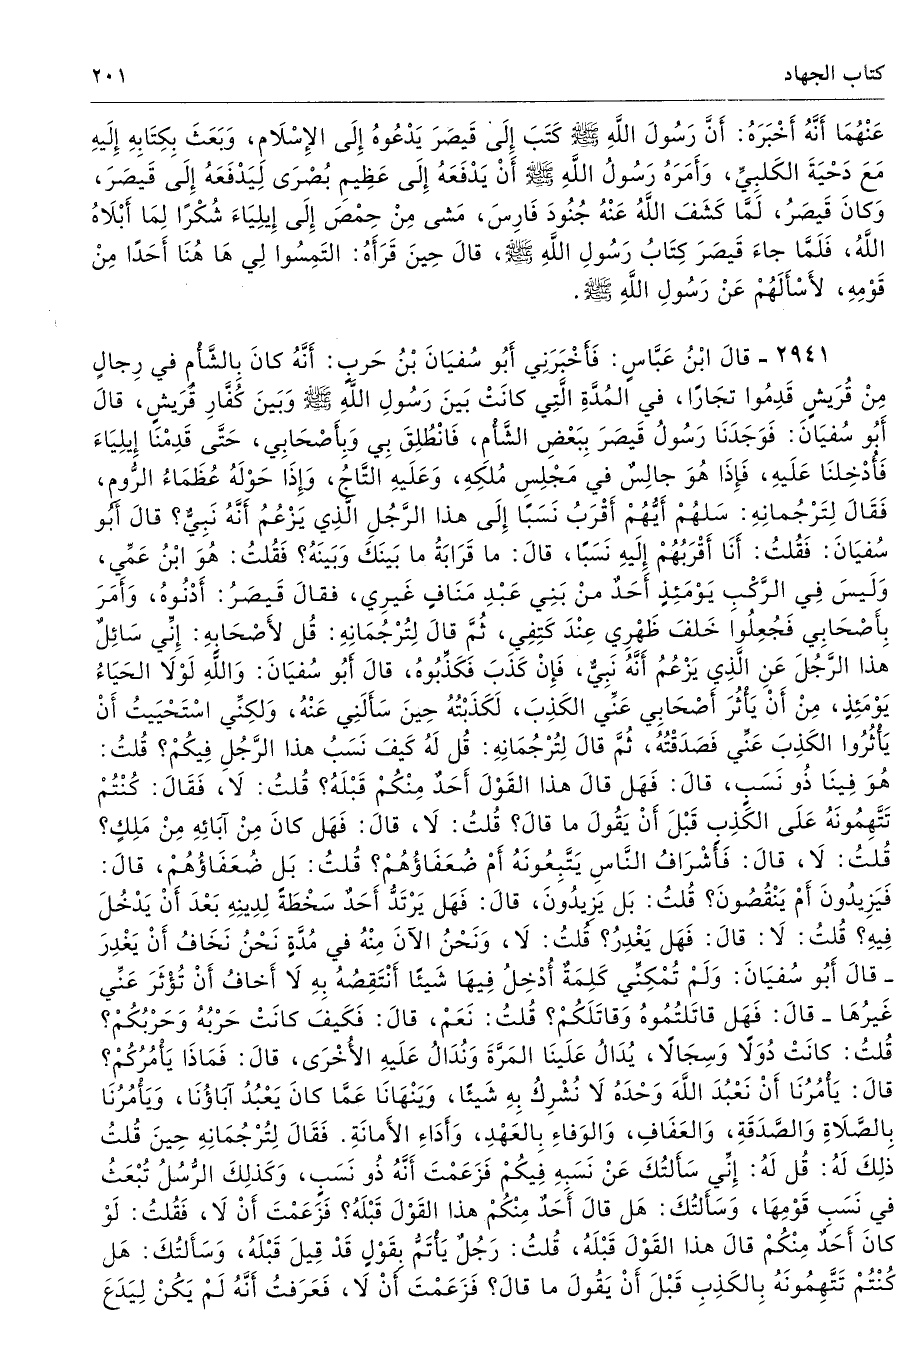 كتاب الجهاد ٢٠١
عَنْهُمَا أَنَّهُ أَخْبَرَهُ: أَنَّ رَسُولَ اللَّهِ ﷺ كَتَبَ إِلَى قَيصَرَ يَدْعُوهُ إِلَى الإِسْلَامِ، وَبَعَثَ بِكِتَابِهِ إِلَيهِ
مَعَ دَحْيَةَ الكَلبِيِّ، وَأَمَرَهُ رَسُولُ اللَّهِ ﷺ أَنْ يَدْفَعَهُ إِلَى عَظِيمِ بُصْرَى لِيَدْفَعَهُ إِلَى قَيصَرَ،
وَكانَ قَيصَرُ، لَمَّا كَشَفَ اللَّهُ عَنْهُ جُنُودَ فَارِسَ، مَشى مِنْ حِمْصَ إِلَى إِيلِيَاءَ شُكْرًا لِمَا أَبْلَاهُ
اللَّهُ، فَلَمَّا جاءَ قَيصَرَ كِتَابُ رَسُولِ اللَّهِ ﷺ، قالَ حِينَ قَرَأَهُ: التَمِسُوا لِي هَا هُنَا أَحَدًا مِنْ
قَوْمِهِ، لأَسْأَلَهُمْ عَنْ رَسُولِ اللَّهِ ﷺ.
٢٩٤١ - قالَ ابْنُ عَبَّاسٍ: فَأَخْبَرَنِي أَبُو سُفيَانَ بْنُ حَربٍ: أَنَّهُ كانَ بِالشَّأْمِ في رِجالٍ
مِنْ قُرَيشٍ قَدِمُوا تِجَارًا، في المُدَّةِ الَّتِي كانَتْ بَينَ رَسُولِ اللَّهِ ﷺ وَبَينَ كُفَّارِ قُرَيشٍ، قالَ
أَبُو سُفيَانَ: فَوَجَدَنَا رَسُولُ قَيصَرَ بِبَعْضِ الشَّأْمِ، فَانْطُلِقَ بِي وَبِأَصْحَابِي، حَتَّى قَدِمْنَا إِيلِيَاءَ
فَأُدْخِلنَا عَلَيهِ، فَإِذَا هُوَ جالِسٌ في مَجْلِسِ مُلكِهِ، وَعَلَيهِ التَّاجُ، وَإِذَا حَوْلَهُ عُظَمَاءُ الرُّومِ،
فَقَالَ لِتَرْجُمَانِهِ: سَلهُمْ أَيُّهُمْ أَقْرَبُ نَسَبًا إِلَى هذا الرَّجُلِ الَّذِي يَزْعُمُ أَنَّهُ نَبِيٌّ؟ قالَ أَبُو
سُفيَانَ: فَقُلتُ: أَنَا أَقْرَبُهُمْ إِلَيهِ نَسَبًا، قالَ: ما قَرَابَةُ ما بَينَكَ وَبَينَهُ؟ فَقُلتُ: هُوَ ابْنُ عَمِّي،
وَلَيسَ فِي الرَّكْبِ يَوْمَئِذٍ أَحَدٌ منْ بَنِي عَبْدِ مَنَافٍ غَيرِي، فقالَ قَيصَرُ: أَدْنُوهُ، وَأَمَرَ
بِأَصْحَابِي فَجُعِلُوا خَلفَ ظَهْرِي عِنْدَ كَتِفِي، ثُمَّ قالَ لِتُرْجُمَانِهِ: قُل لأَصْحَابِهِ: إِنِّي سَائِلٌ
هذا الرَّجُلَ عَنِ الَّذِي يَزْعُمُ أَنَّهُ نَبِيٌّ، فَإِنْ كَذَبَ فَكَذِّبُوهُ، قالَ أَبُو سُفيَانَ: وَاللَّهِ لَوْلَا الحَيَاءُ
يَوْمَئِذٍ، مِنْ أَنْ يَأْثُرَ أَصْحَابِي عَنِّي الكَذِبَ، لَكَذَبْتُهُ حِينَ سَأَلَنِي عَنْهُ، وَلكِنِّي اسْتَحْيَيتُ أَنْ
يَأْثُرُوا الكَذِبَ عَنِّي فَصَدَقْتُهُ، ثُمَّ قالَ لِتُرْجُمَانِهِ: قُل لَهُ كَيفَ نَسَبُ هذا الرَّجُلِ فِيكُمْ؟ قُلتُ:
هُوَ فِينَا ذُو نَسَبٍ، قالَ: فَهَل قالَ هذا القَوْلَ أَحَدٌ مِنْكُمْ قَبْلَهُ؟ قُلتُ: لَا، فَقَالَ: كُنْتُمْ
تَتَّهِمُونَهُ عَلَى الكَذِبِ قَبْلَ أَنْ يَقُولَ ما قالَ؟ قُلتُ: لَا، قالَ: فَهَل كانَ مِنْ آبَائِهِ مِنْ مَلِكٍ؟
قُلتُ: لَا، قالَ: فَأَشْرَافُ النَّاسِ يَتَّبِعُونَهُ أَمْ ضُعَفَاؤُهُمْ؟ قُلتُ: بَل ضُعَفَاؤُهُمْ، قالَ:
فَيَزِيدُونَ أَمْ يَنْقُصُونَ؟ قُلتُ: بَل يَزِيدُونَ، قالَ: فَهَل يَرْتَدُّ أَحَدٌ سَخْطَةً لِدِينِهِ بَعْدَ أَنْ يَدْخُلَ
فِيهِ؟ قُلتُ: لَا: قالَ: فَهَل يَغْدِرُ؟ قُلتُ: لَا، وَنَحْنُ الآنَ مِنْهُ في مُدَّةٍ نَحْنُ نَخَافُ أَنْ يَغْدِرَ
- قالَ أَبُو سُفيَانَ: وَلَمْ تُمْكِنِّي كَلِمَةٌ أُدْخِلُ فِيهَا شَيئًا أَنْتَقِصُهُ بِهِ لَا أَخافُ أَنْ تُؤْثَرَ عَنِّي
غَيرُهَا - قالَ: فَهَل قاتَلتُمُوهُ وَقاتَلَكُمْ؟ قُلتُ: نَعَمْ، قالَ: فَكَيفَ كانَتْ حَرْبُهُ وَحَرْبُكُمْ؟
قُلتُ: كانَتْ دُوَلًا وَسِجَالًا، يُدَالُ عَلَينَا المَرَّةَ وَنُدَالُ عَلَيهِ الأُخْرَى، قالَ: فَمَاذَا يَأْمُرُكُمْ؟
قالَ: يَأْمُرُنَا أَنْ نَعْبُدَ اللَّهَ وَحْدَهُ لَا نُشْرِكُ بِهِ شَيئًا، وَيَنْهَانَا عَمَّا كانَ يَعْبُدُ آبَاؤُنَا، وَيَأْمُرُنَا
بِالصَّلَاةِ وَالصَّدَقَةِ، وَالعَفَافِ، وَالوَفاءِ بِالعَهْدِ، وَأَدَاءِ الأَمانَةِ. فَقَالَ لِتُرْجُمَانِهِ حِينَ قُلتُ
ذلِكَ لَهُ: قُل لَهُ: إِنِّي سَأَلتُكَ عَنْ نَسَبِهِ فِيكُمْ فَزَعَمْتَ أَنَّهُ ذُو نَسَبٍ، وَكَذلِكَ الرُّسُلُ تُبْعَثُ
في نَسَبِ قَوْمِهَا، وَسَأَلتُكَ: هَل قالَ أَحَدٌ مِنْكُمْ هذا القَوْلَ قَبْلَهُ؟ فَزَعَمْتَ أَنْ لَا، فَقُلتُ: لَوْ
كانَ أَحَدٌ مِنْكُمْ قالَ هذا القَوْلَ قَبْلَهُ، قُلتُ: رَجُلٌ يَأْتَمُّ بِقَوْلٍ قَدْ قِيلَ قَبْلَهُ، وَسَأَلتُكَ: هَل
كُنْتُمْ تَتَّهِمُونَهُ بِالكَذِبِ قَبْلَ أَنْ يَقُولَ ما قالَ؟ فَزَعَمْتَ أَنْ لَا، فَعَرَفتُ أَنَّهُ لَمْ يَكُنْ لِيَدَعَ